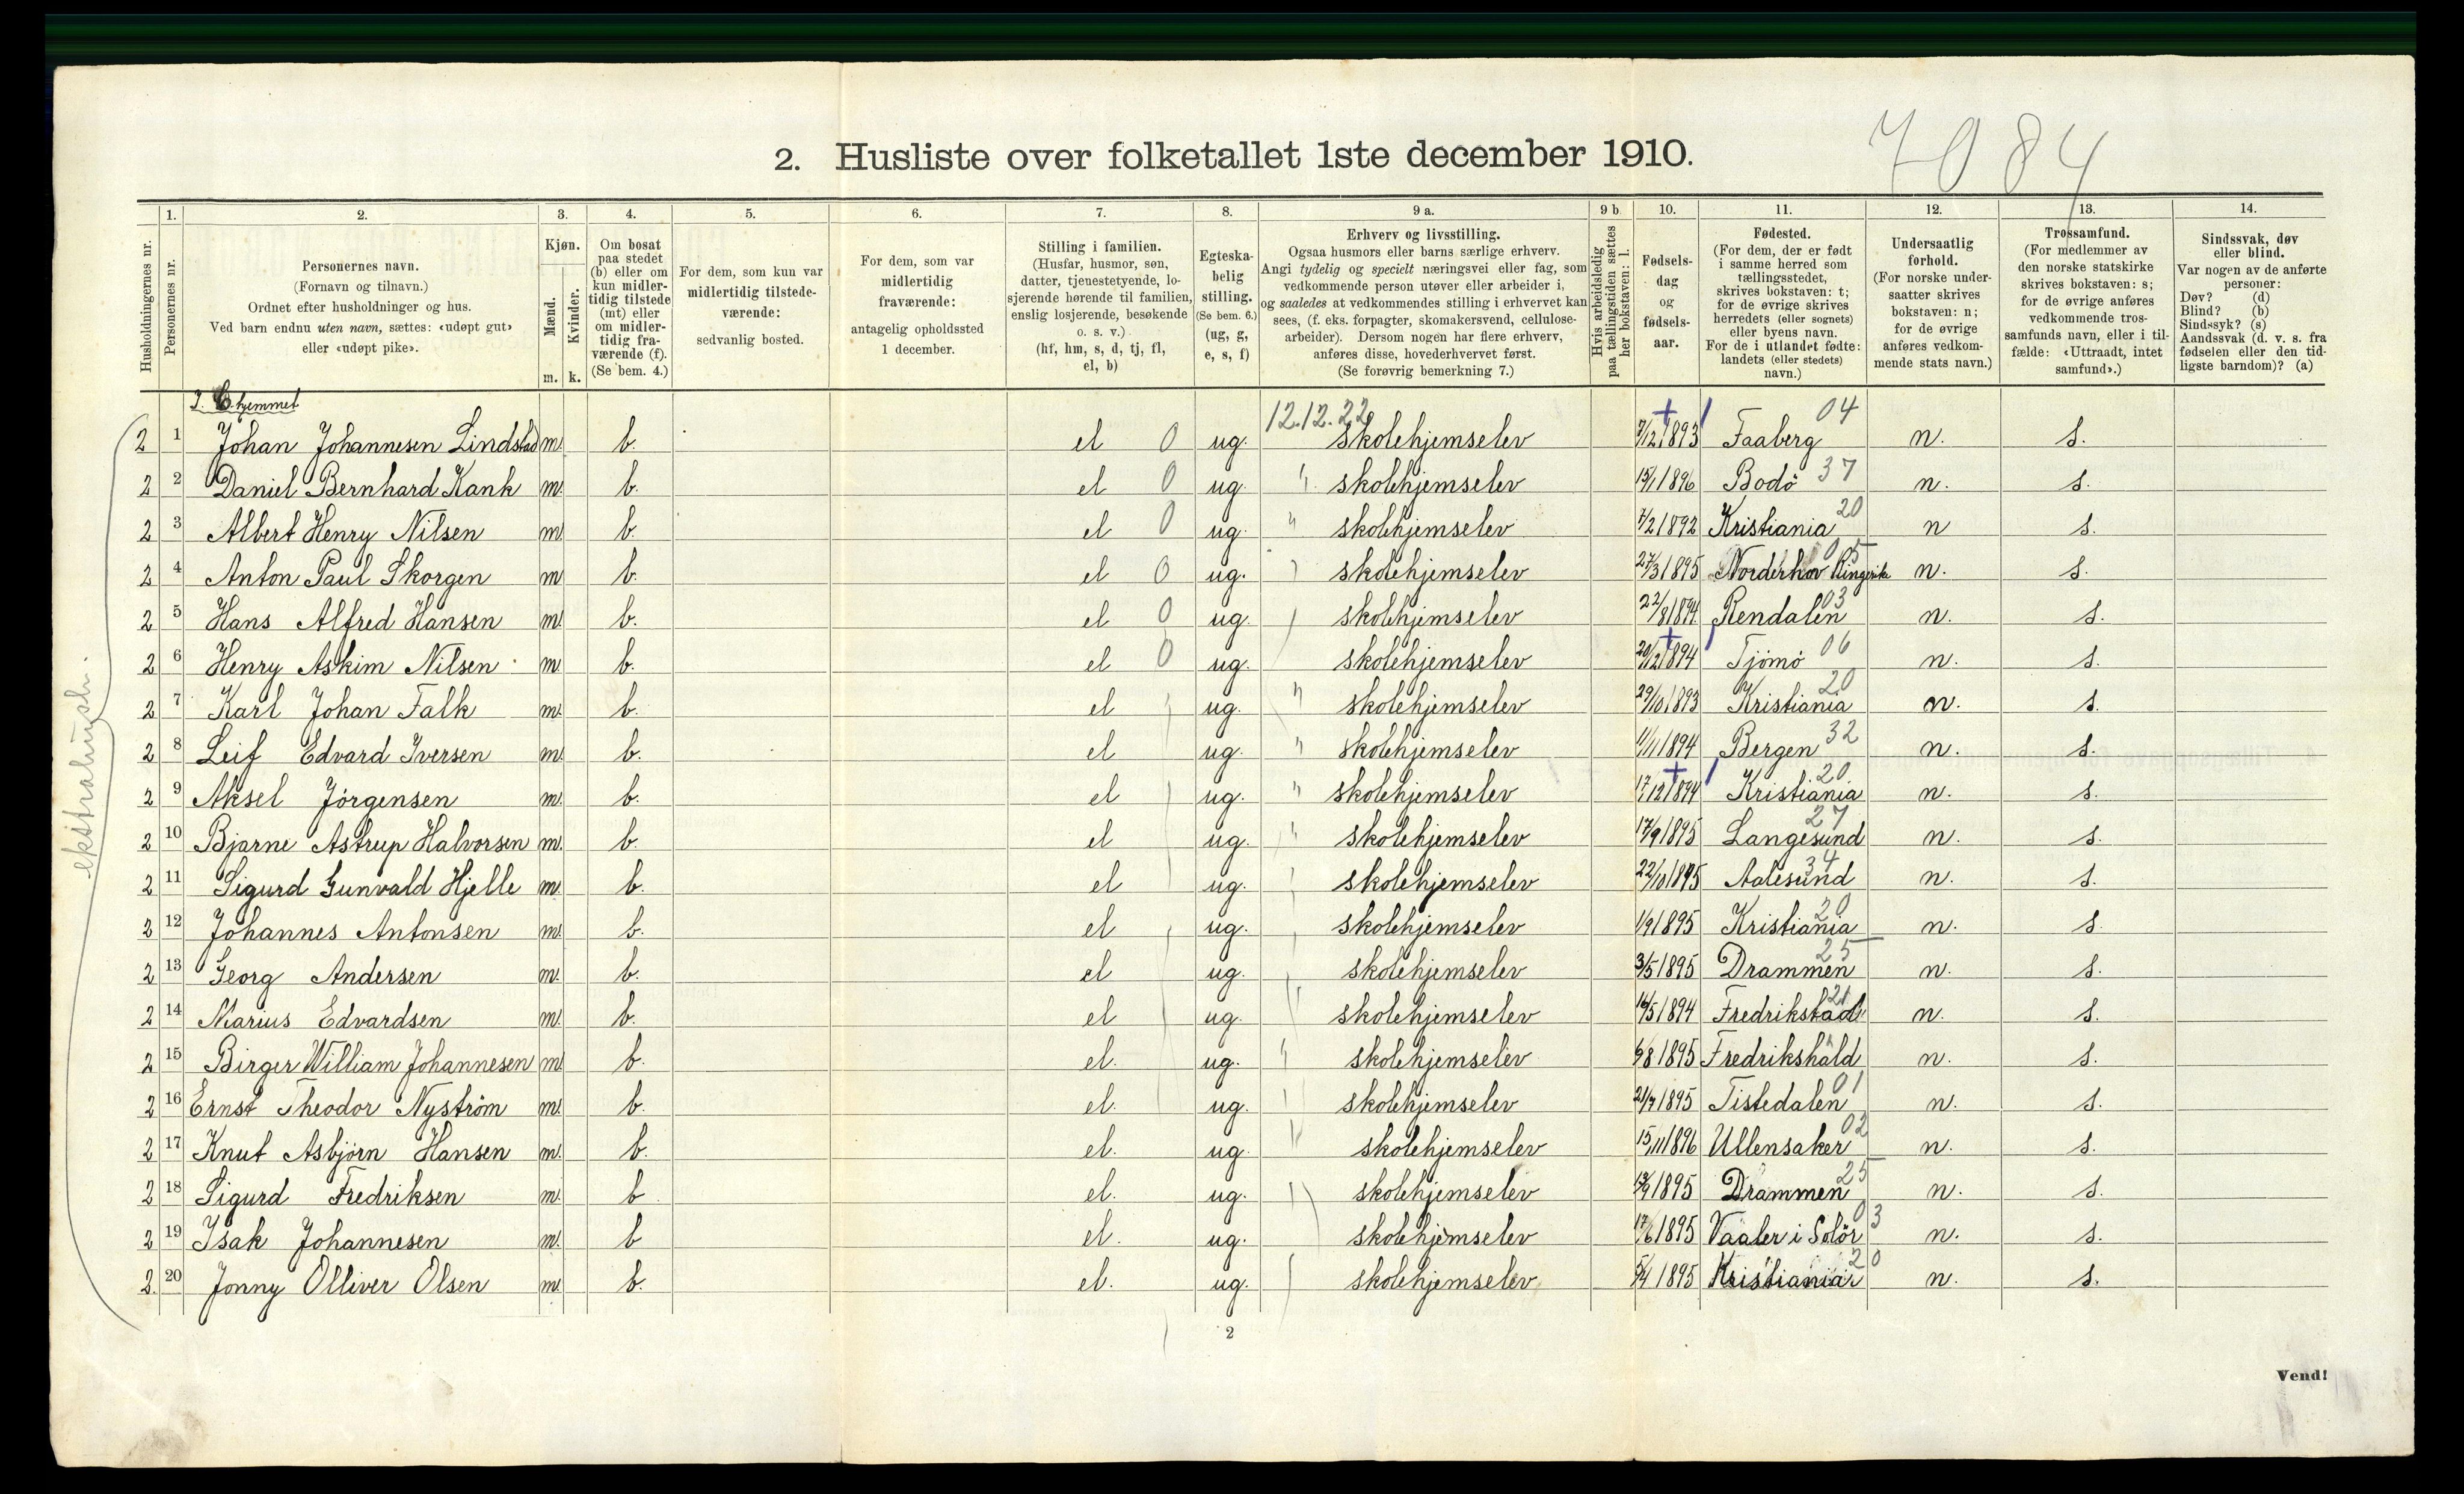 7084
2. Husliste over folketallet 1ste december 1910.
Husholdningernes nr. | 1. Personernes nr. | 2. Personernes navn. (Fornavn og tilnavn.) Ordnet efter husholdninger og hus. Ved barn endnu uten navn, sættes: «udøpt gut» eller «udøpt pike». | 3. Kjøn. Mænd. m. Kvinder. k. | 4. Om bosat paa stedet (b) eller om kun midlertidig tilstede (mt) eller om midlertidig fraværende (f). (Se bem. 4.) | 5. For dem, som kun var midlertidig tilstedeværende: sedvanlig bosted. | 6. For dem, som var midlertidig fraværende: antagelig opholdssted 1 december. | 7. Stilling i familien. (Husfar, husmor, søn, datter, tjenestetyende, losjerende hørende til familien, enslig losjerende, besøkende o. s. v.) (hf, hm, s, d, tj, fl, el, b) | 8. Egteskabelig stilling. (Se bem. 6.) (ug, g, e, s, f) | 9 a. Erhverv og livsstilling. Ogsaa husmors eller barns særlige erhverv. Angi tydelig og specielt næringsvei eller fag, som vedkommende person utøver eller arbeider i, og saaledes at vedkommendes stilling i erhvervet kan sees, (f. eks. forpagter, skomakersvend, cellulosearbeider). Dersom nogen har flere erhverv, anføres disse, hovederhvervet først. (Se forøvrig bemerkning 7.) | 9 b. Hvis arbeidsledig paa tællingstiden sættes her bokstaven: l. | 10. Fødselsdag og fødselsaar. | 11. Fødested. (For dem, der er født i samme herred som tællingsstedet, skrives bokstaven: t; for de øvrige skrives herredets (eller sognets) eller byens navn. For de i utlandet fødte: landets (eller stedets) navn.) | 12. Undersaatlig forhold. (For norske undersaatter skrives bokstaven: n; for de øvrige anføres vedkommende stats navn.) | 13. Trossamfund. (For medlemmer av den norske statskirke skrives bokstaven: s; for de øvrige anføres vedkommende trossamfunds navn, eller i tilfælde: «Uttraadt, intet samfund».) | 14. Sindssvak, døv eller blind. Var nogen av de anførte personer: Døv? (d) Blind? (b) Sindssyk? (s) Aandssvak (d. v. s. fra fødselen eller den tidligste barndom)? (a)
hjemmet
12.12.22
2 1 Johan Johannesen Lindstad m. b. el 0 ug. skolehjemselev 7/12 1893 Faaberg 04 n. s.
2 2 Daniel Bernhard Kank m. b. el 0 ug. " skolehjemselev 15/1 1896 Bodö 37 n. s.
2 3 Albert Henry Nilsen m. b. el 0 ug. " skolehjemselev 7/2 1892 Kristiania 20 n s.
2 4 Anton Paul Skorgen m b. el 0 ug. skolehjemselev 27/3 1895 Norderhov Ringerike 05 n. s.
2 5 Hans Alfred Hansen m. b. el 0 ug. skolehjemselev 22/8 1894 Rendalen 03 n. s.
2 6 Henry Askim Nilsen m b. el 0 ug. skolehjemselev 20/12 1894 Tjömö 06 n. s.
2 7 Karl Johan Falk m. b. el ug. " skolehjemselev 29/10 1893 Kristiania 20 n. s.
2 8 Leif Edvard Iversen m. b. el ug. " skolehjemselev 1/11 1894 Bergen 32 n. s.
2 9 Aksel Jörgensen m. b. el ug. " skolehjemselev 17/12 1894 Kristiania 20 n. s.
2 10 Bjarne Astrup Halvorsen m. b. el ug. " skolehjemselev 17/9 1895 Langesund 27 n. s.
2 11 Sigurd Gunvald Hjelle m. b. el ug. skolehjemselev 22/10 1895 Aalesund 34 n. s.
2 12 Johannes Antonsen m. b. el ug. skolehjemselev 1/9 1895 Kristiania 20 n. s.
2 13 Georg Andersen m. b. el ug. skolehjemselev 3/5 1895 Drammen 25 n. s.
2 14 Marius Edvardsen m. b. el ug. skolehjemselev 16/5 1894 Fredrikstad 21 n. s.
2 15 Birger William Johannesen m. b. el. ug. skolehjemselev 6/8 1895 Fredrikshald n. s.
2 16 Ernst Theodor Nyström m. b. el. ug. skolehjemselev 21/7 1895 Tistedalen 01 n. s.
2 17 Knut Asbjörn Hansen m. b. el. ug. skolehjemselev 15/11 1896 Ullensaker 02 n. s.
2 18 Sigurd Fredriksen m. b. el. ug. skolehjemselev 1895 Drammen 25 n. s.
2 19 Isak Johannesen m. b el. ug. skolehjemselev 17/6 1895 Vaaler i Solör 03 n. s.
2 20 Jonny Olliver Olsen m. b. el. ug. skolehjemselev 5/4 1895 Kristiania 20 n. s.
2
Vend!